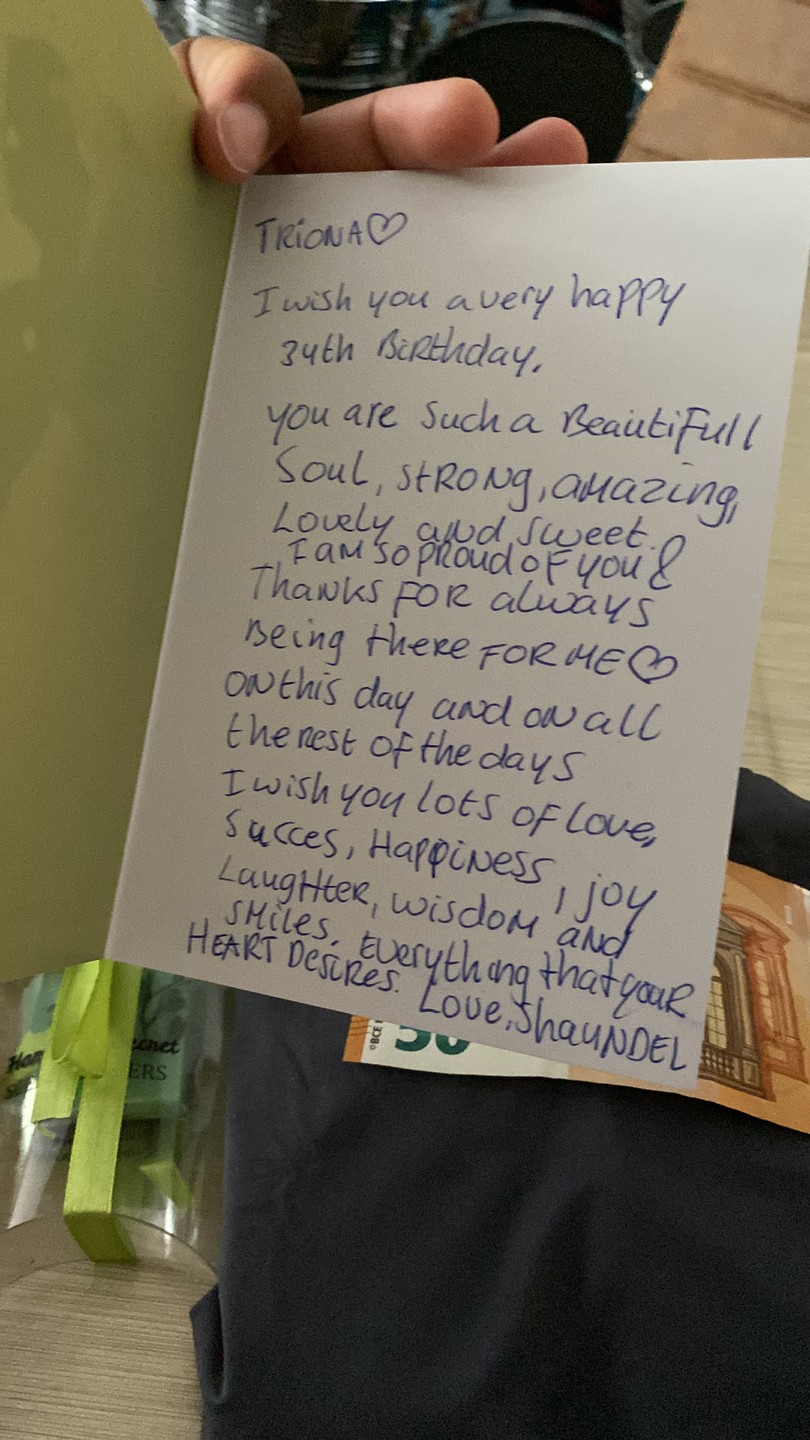 TRiONA♡
I wish you a very happy
34th BiRthday.
you are such a BeautiFull
Soul, stRONg, amazing,
Lovely and sweet.
I am so pRoud oF you &
Thanks FOR always
Being theRe FOR ME♡
ON this day and on all
the rest of the days
I wish you lots oF love,
succes, Happiness, joy
LaugHter, wisdom and
smiles. Everything that youR
HEART Desires.
Love, ShaUNDEL
©BCE
50